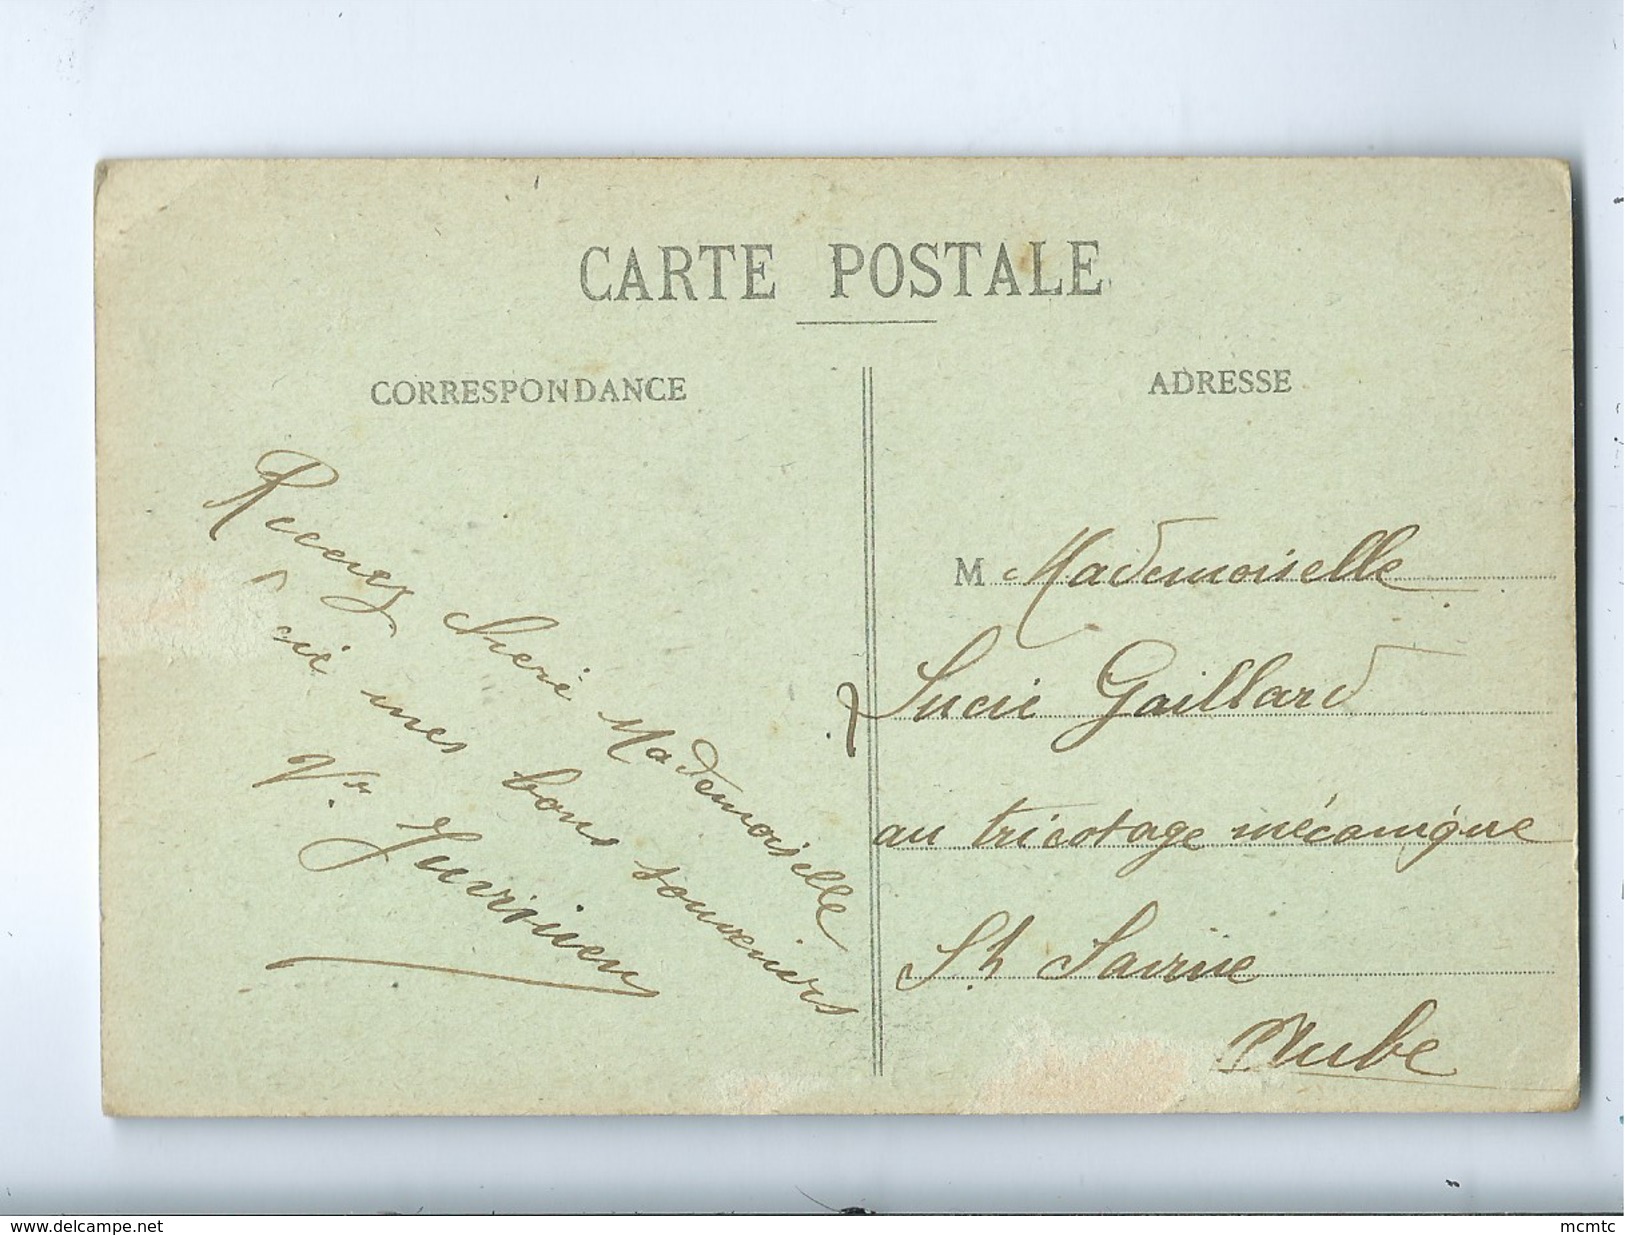 CARTE POSTALE
CORRESPONDANCE
Recevez Cheré Mademoiselle
ici mes bons souvenirs
Vve
ADRESSE
M Mademoiselle
Lucie Gaillard
au tricotage mécanique
St Savine
Aube
www.delcampe.net
mcmtc